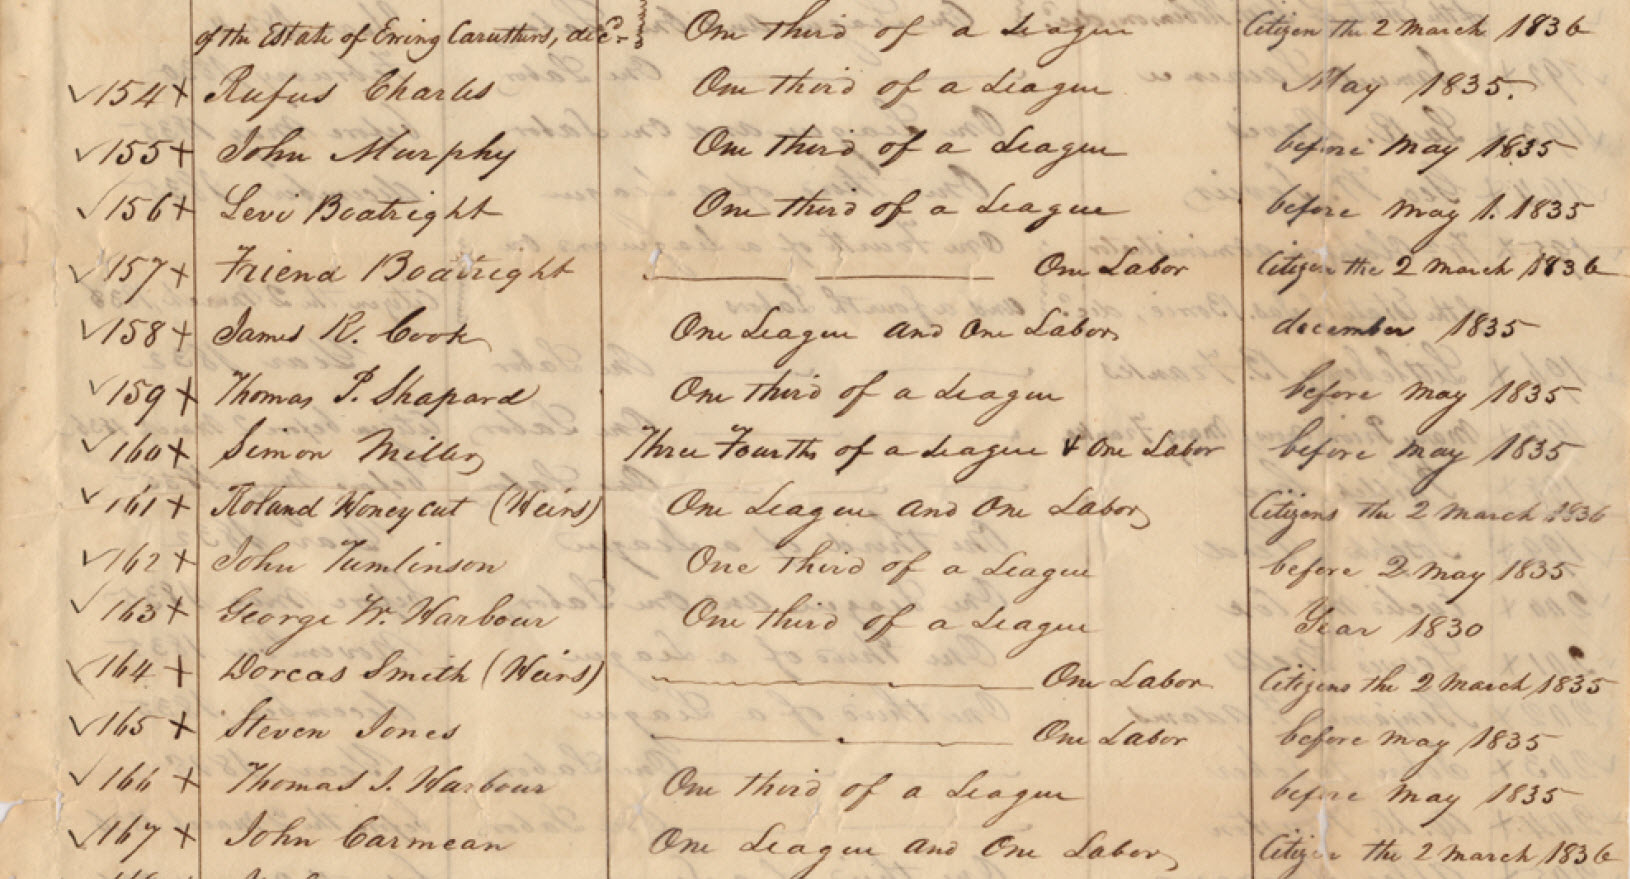 of the Estate of Ewing Caruthers, dec'd. One third of a League Citizen the 2 March 1836
✓154+ Rufus Charles One third of a League May 1835.
✓155+ John Murphy One third of a League before May 1835
✓156+ Levi Boatright One third of a League before May 1. 1835
✓157+ Friend Boatright One Labor Citizen the 2 March 1836
✓158+ James R. Cook One League and One Labor december 1835
✓159+ Thomas P. Shapard One third of a League before May 1835
✓160+ Simon Miller Three Fourths of a League & One Labor before May 1835
✓161+ Roland Honeycut (Heirs) One League and One Labor Citizens the 2 March 1836
✓162+ John Tumlinson One third of a League before 2 May 1835
✓163+ George W. Harbour One third of a League Year 1830
✓164+ Dorcas Smith (Heirs) One Labor Citizens the 2 March 1835
✓165+ Steven Jones One Labor before May 1835
✓166+ Thomas J. Harbour One third of a League before May 1835
✓167+ John Carmean One League and One Labor Citizen the 2 March 1836